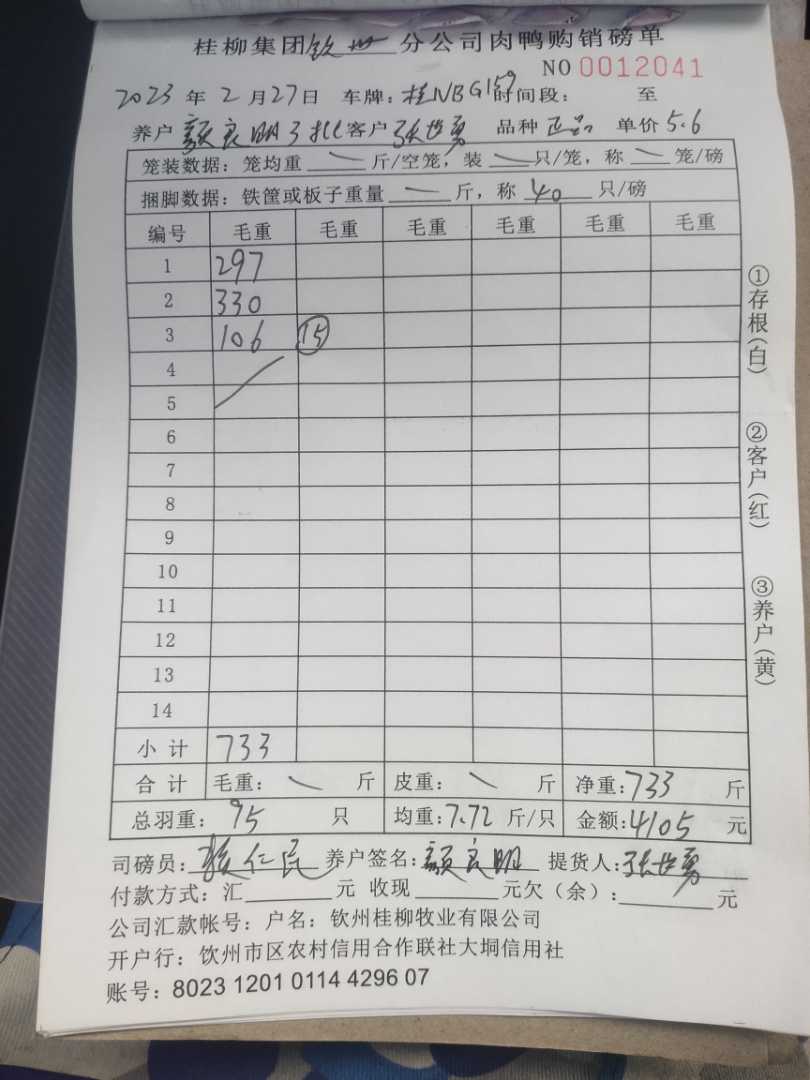 桂柳集团钦州分公司肉鸭购销磅单
NO 0012041
2023 年 2 月 27 日 车牌：桂NBG159 时间段： 至
养户 颜良明 客户 张世勇 品种 正品 单价 5.6
笼装数据：笼均重 — 斤/空笼，装 — 只/笼，称 — 笼/磅
捆脚数据：铁筐或板子重量 — 斤，称 40 只/磅
编号 毛重 毛重 毛重 毛重 毛重 毛重
1 297
2 330
3 106 15
4
5
6
7
8
9
10
11
12
13
14
小计 733
合计 毛重： 斤 皮重： 斤 净重：733 斤
总羽重：95 只 均重：7.72 斤/只 金额：4105 元
司磅员： 仁民 养户签名：颜良明 提货人：张世勇
付款方式：汇 元 收现 元欠（余）： 元
公司汇款帐号：户名：钦州桂柳牧业有限公司
开户行：钦州市区农村信用合作联社大垌信用社
账号：8023 1201 0114 4296 07
①存根（白）
②客户（红）
③养户（黄）